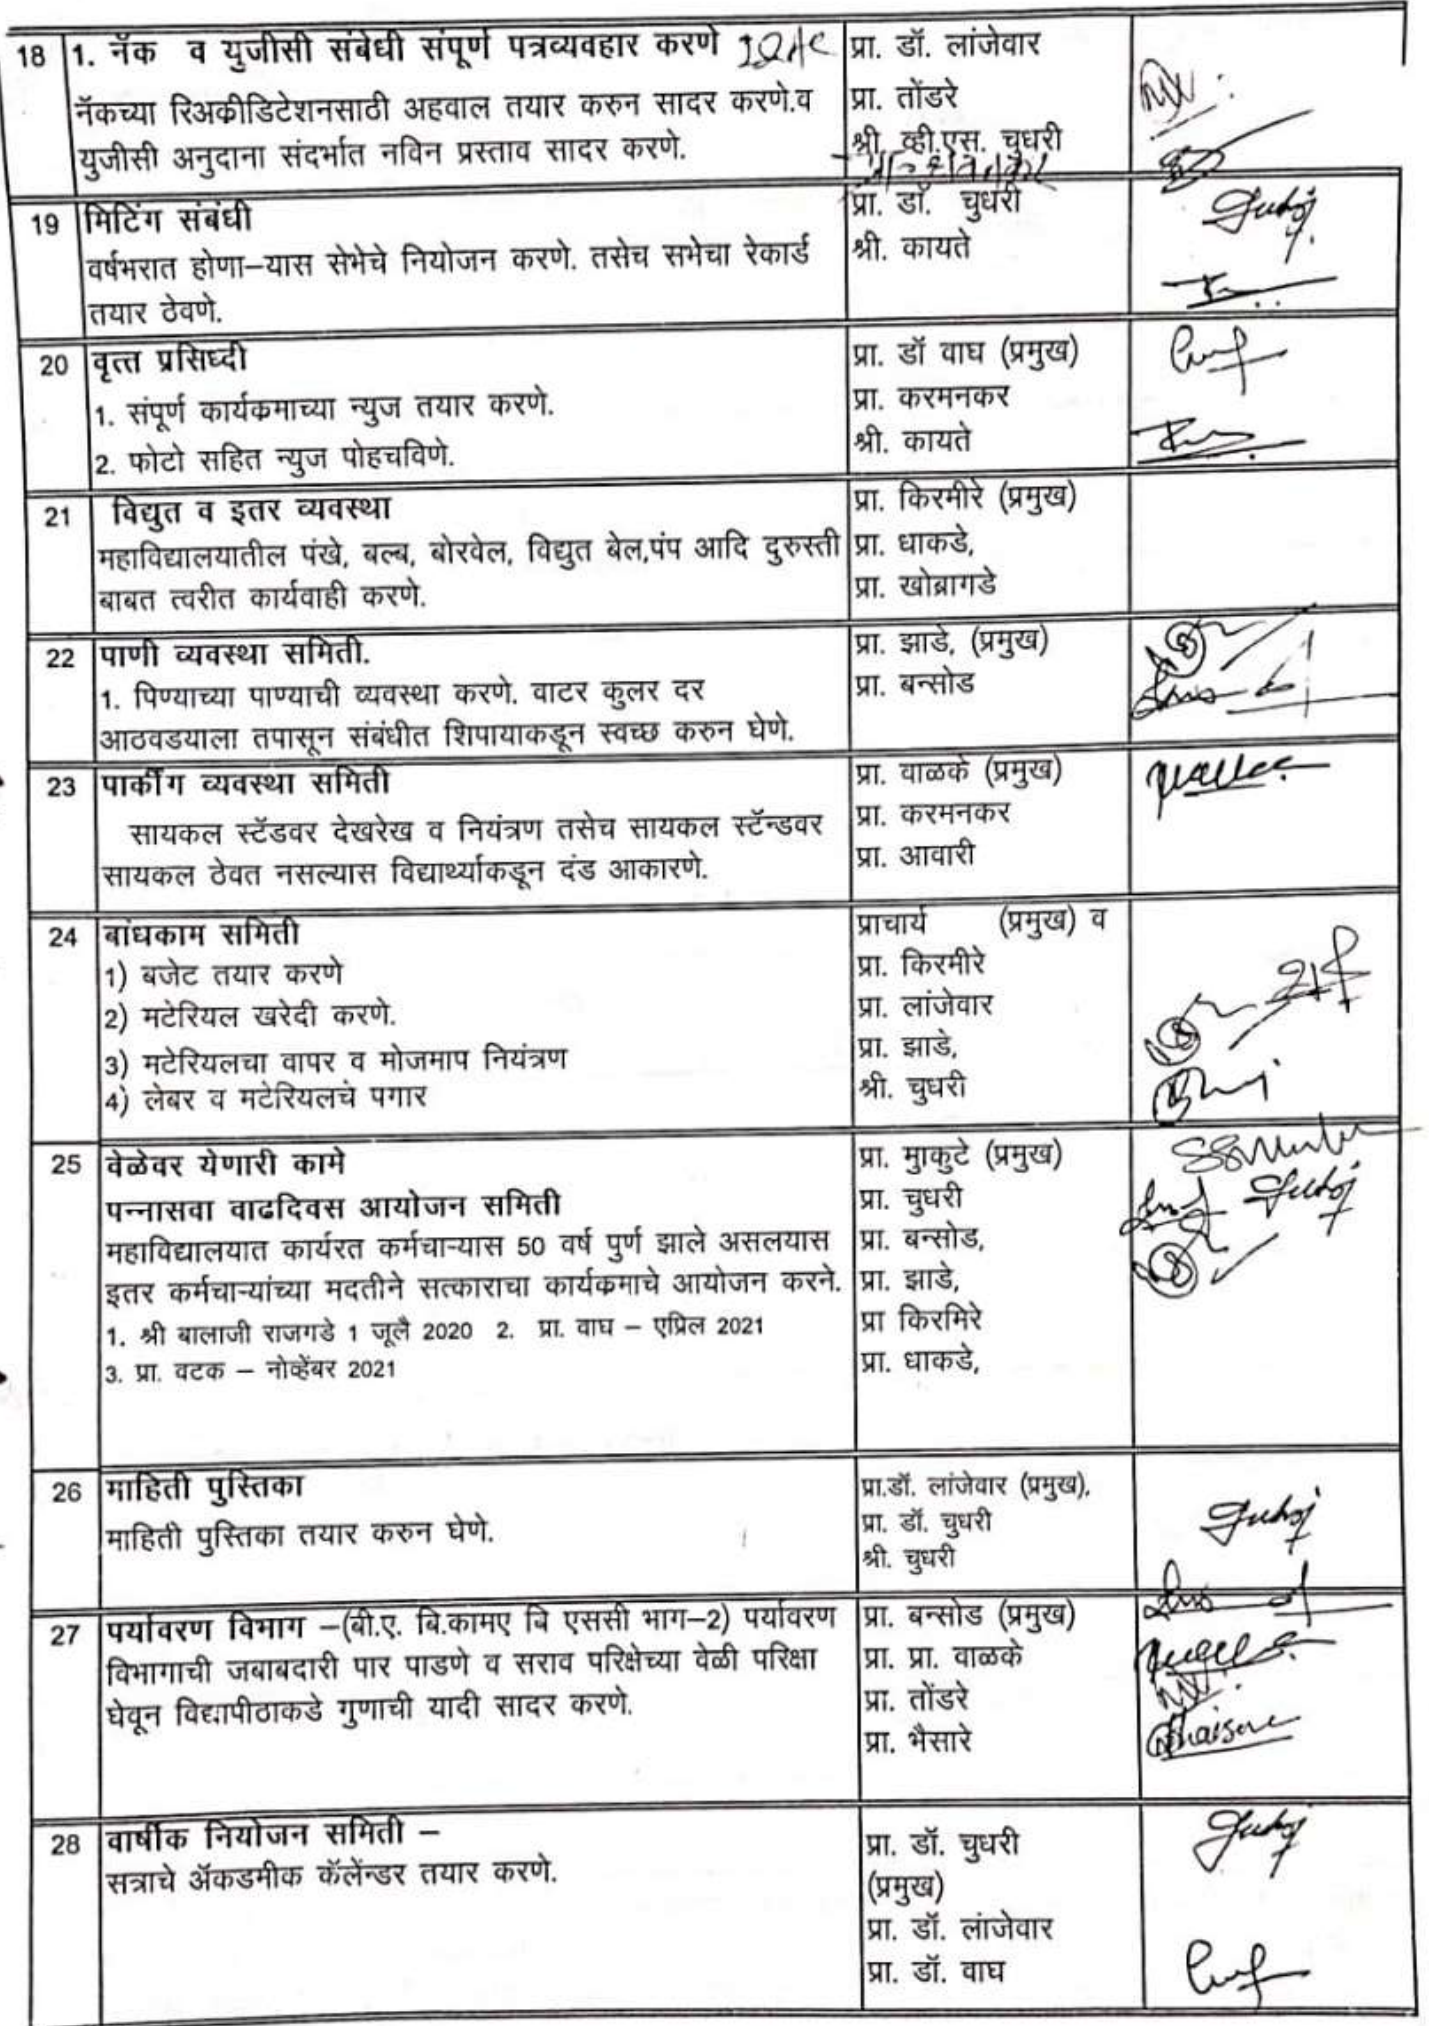 18 1. नॅक व युजीसी संबेधी संपूर्ण पत्रव्यवहार करणे IQAC
नॅकच्या रिअक्रीडिटेशनसाठी अहवाल तयार करुन सादर करणे.व
युजीसी अनुदाना संदर्भात नविन प्रस्ताव सादर करणे.
प्रा. डॉ. लांजेवार
प्रा. तोंडरे
श्री. व्ही.एस. चुधरी
19 मिटिंग संबंधी
वर्षभरात होणा–यास सेभेचे नियोजन करणे. तसेच सभेचा रेकार्ड
तयार ठेवणे.
प्रा. डॉ. चुधरी
श्री. कायते
20 वृत्त प्रसिध्दी
1. संपूर्ण कार्यक्रमाच्या न्युज तयार करणे.
2. फोटो सहित न्युज पोहचविणे.
प्रा. डॉ वाघ (प्रमुख)
प्रा. करमनकर
श्री. कायते
21 विद्युत व इतर व्यवस्था
महाविद्यालयातील पंखे, बल्ब, बोरवेल, विद्युत बेल,पंप आदि दुरुस्ती
बाबत त्वरीत कार्यवाही करणे.
प्रा. किरमीरे (प्रमुख)
प्रा. धाकडे,
प्रा. खोब्रागडे
22 पाणी व्यवस्था समिती.
1. पिण्याच्या पाण्याची व्यवस्था करणे. वाटर कुलर दर
आठवडयाला तपासून संबंधीत शिपायाकडून स्वच्छ करुन घेणे.
प्रा. झाडे, (प्रमुख)
प्रा. बन्सोड
23 पार्कींग व्यवस्था समिती
सायकल स्टॅडवर देखरेख व नियंत्रण तसेच सायकल स्टॅन्डवर
सायकल ठेवत नसल्यास विद्यार्थ्याकडून दंड आकारणे.
प्रा. वाळके (प्रमुख)
प्रा. करमनकर
प्रा. आवारी
24 बांधकाम समिती
1) बजेट तयार करणे
2) मटेरियल खरेदी करणे.
3) मटेरियलचा वापर व मोजमाप नियंत्रण
4) लेबर व मटेरियलचे पगार
प्राचार्य (प्रमुख) व
प्रा. किरमीरे
प्रा. लांजेवार
प्रा. झाडे,
श्री. चुधरी
25 वेळेवर येणारी कामे
पन्नासवा वाढदिवस आयोजन समिती
महाविद्यालयात कार्यरत कर्मचाऱ्यास 50 वर्ष पुर्ण झाले असलयास
इतर कर्मचाऱ्यांच्या मदतीने सत्काराचा कार्यक्रमाचे आयोजन करने.
1. श्री बालाजी राजगडे 1 जूलै 2020 2. प्रा. वाघ – एप्रिल 2021
3. प्रा. वटक – नोव्हेंबर 2021
प्रा. मुाकुटे (प्रमुख)
प्रा. चुधरी
प्रा. बन्सोड,
प्रा. झाडे,
प्रा किरमिरे
प्रा. धाकडे,
26 माहिती पुस्तिका
माहिती पुस्तिका तयार करुन घेणे.
प्रा.डॉ. लांजेवार (प्रमुख),
प्रा. डॉ. चुधरी
श्री. चुधरी
27 पर्यावरण विभाग –(बी.ए. बि.कामए बि एससी भाग–2) पर्यावरण
विभागाची जबाबदारी पार पाडणे व सराव परिक्षेच्या वेळी परिक्षा
घेवून विद्यापीठाकडे गुणाची यादी सादर करणे.
प्रा. बन्सोड (प्रमुख)
प्रा. प्रा. वाळके
प्रा. तोंडरे
प्रा. भैसारे
28 वार्षीक नियोजन समिती –
सत्राचे ॲकडमीक कॅलेंन्डर तयार करणे.
प्रा. डॉ. चुधरी
(प्रमुख)
प्रा. डॉ. लांजेवार
प्रा. डॉ. वाघ